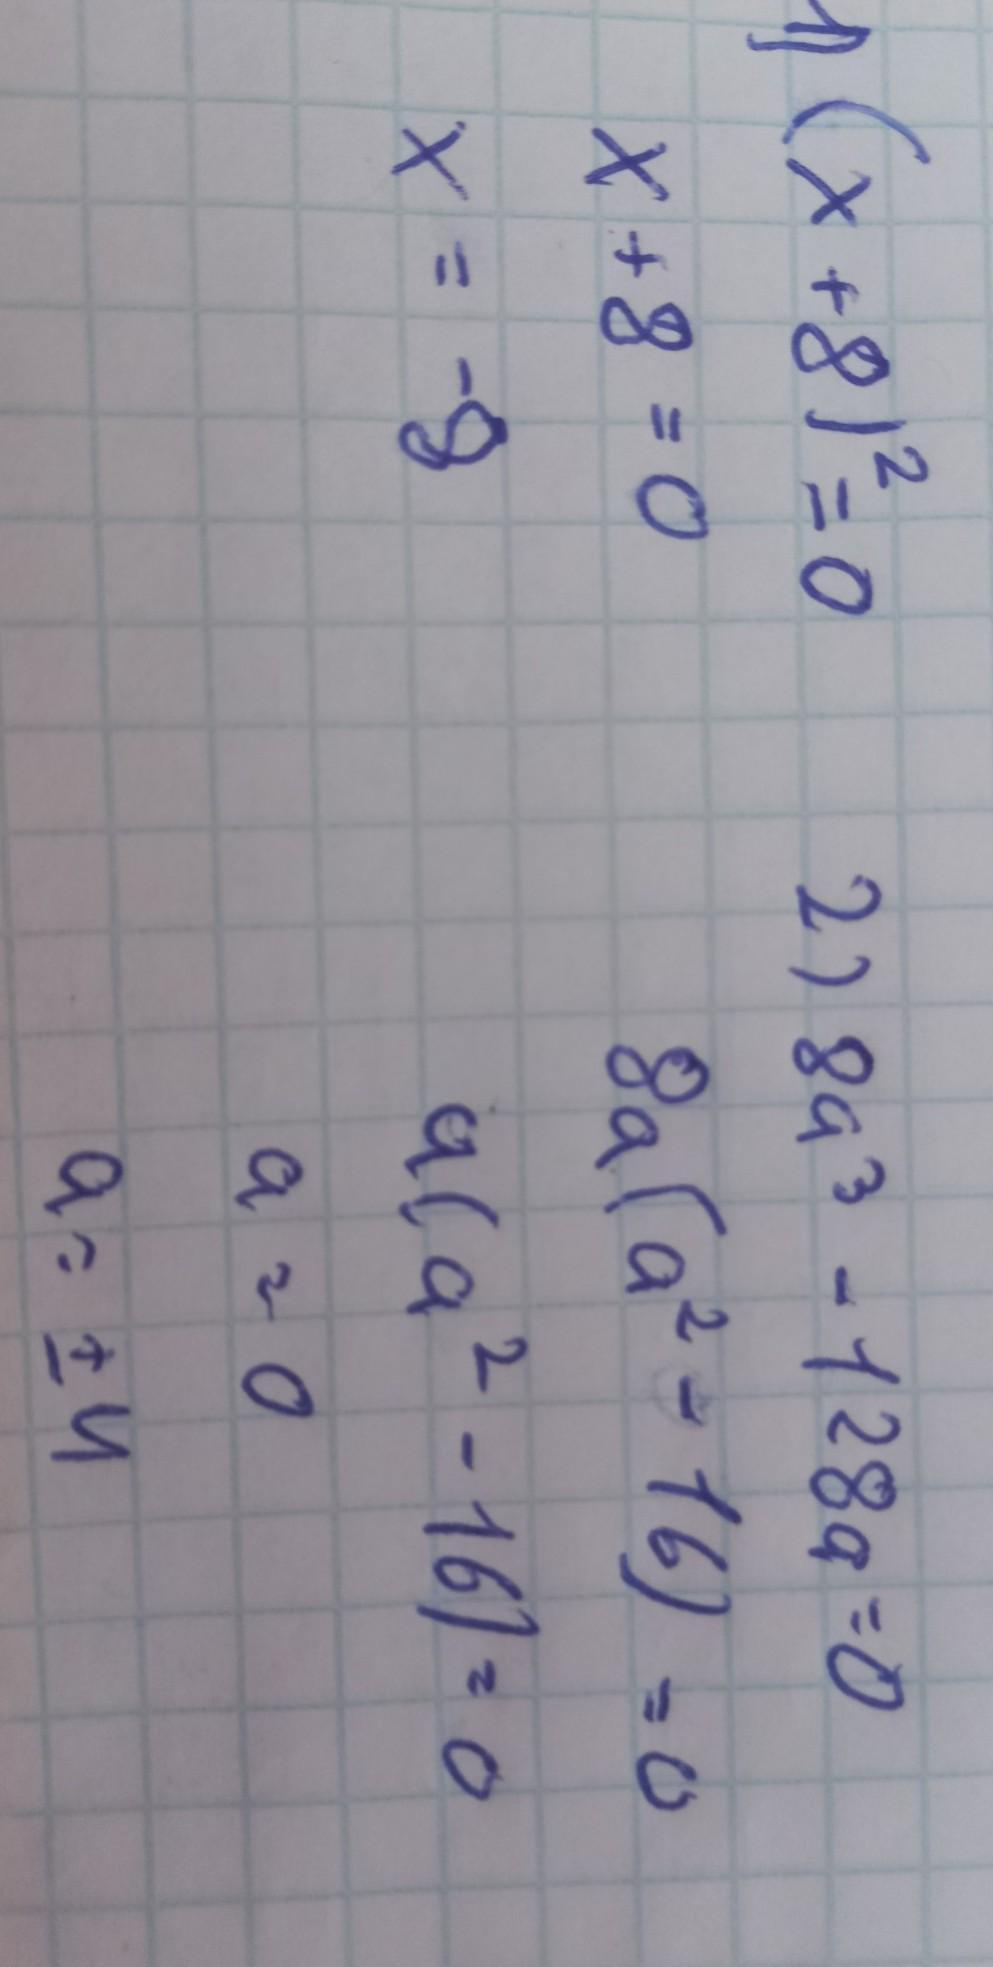 1) (x + 8)² = 0
x + 8 = 0
x = -8
2) 8a³ - 128a = 0
8a(a² - 16) = 0
a(a² - 16) = 0
a = 0
a = ±4